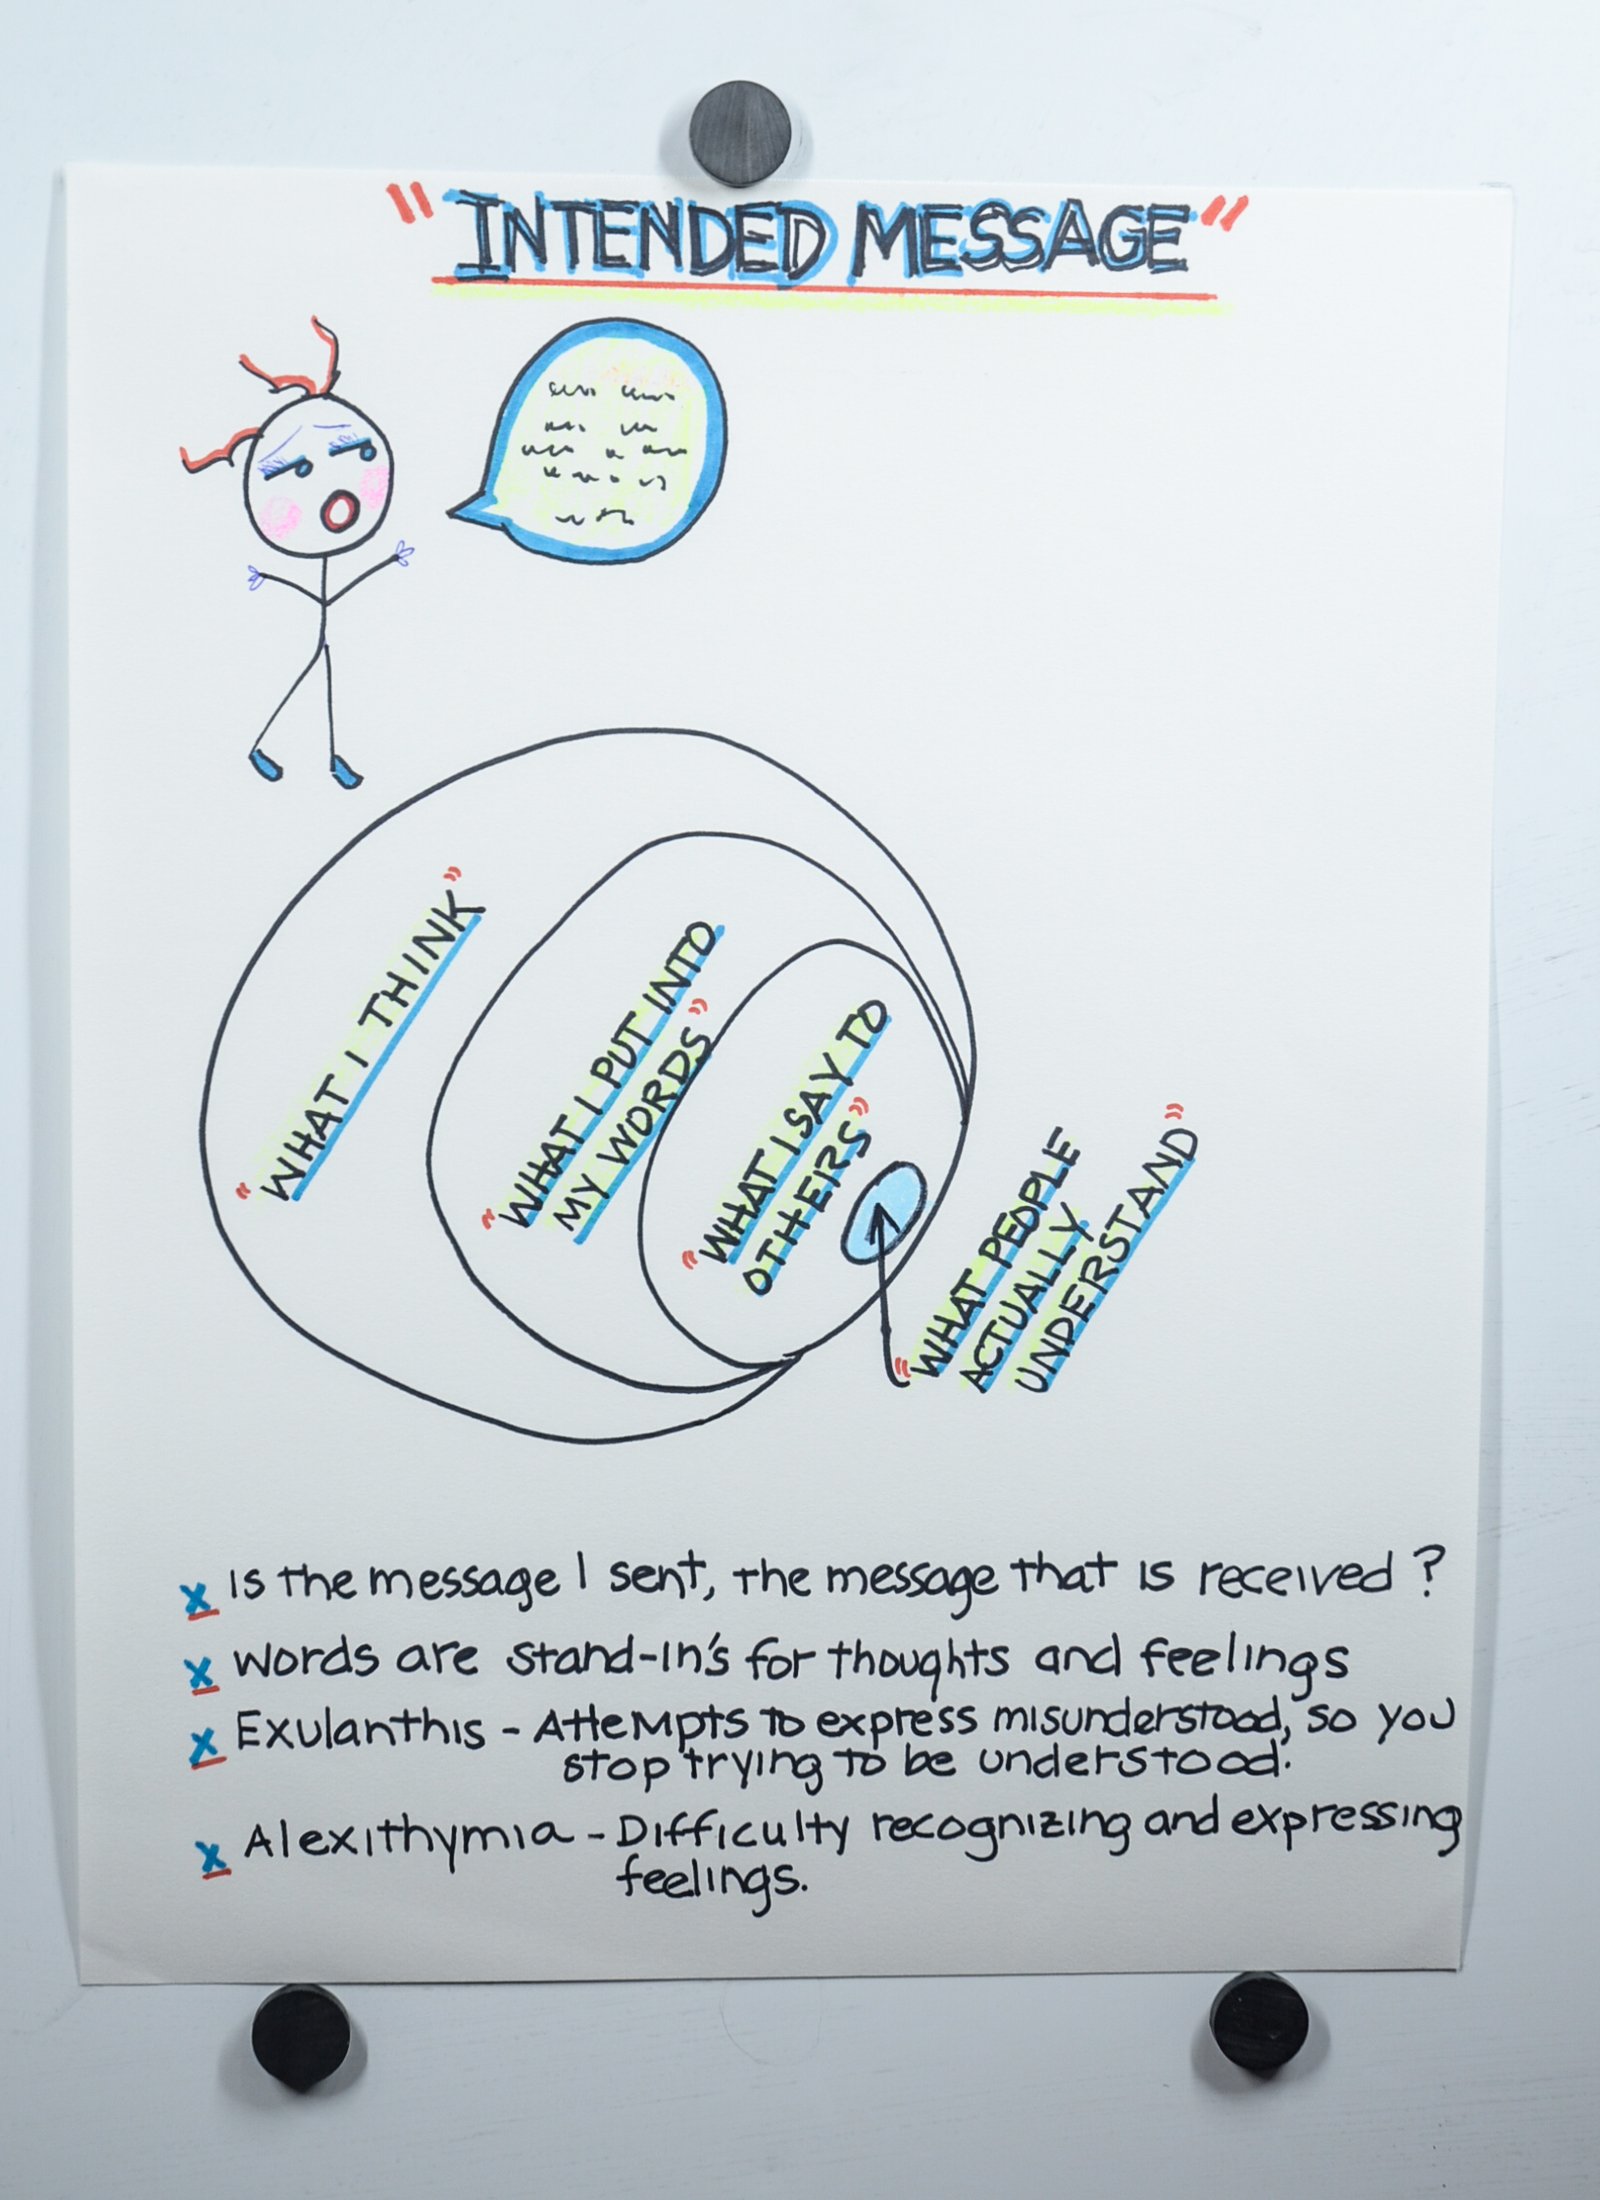 "INTENDED MESSAGE"
"WHAT I THINK"
"WHAT I PUT INTO
MY WORDS"
"WHAT I SAY TO
OTHERS"
"WHAT PEOPLE
ACTUALLY
UNDERSTAND"
x Is the message I sent, the message that is received?
x Words are stand-in's for thoughts and feelings
x Exulanthis - Attempts to express misunderstood, so you
stop trying to be understood.
x Alexithymia - Difficulty recognizing and expressing
feelings.